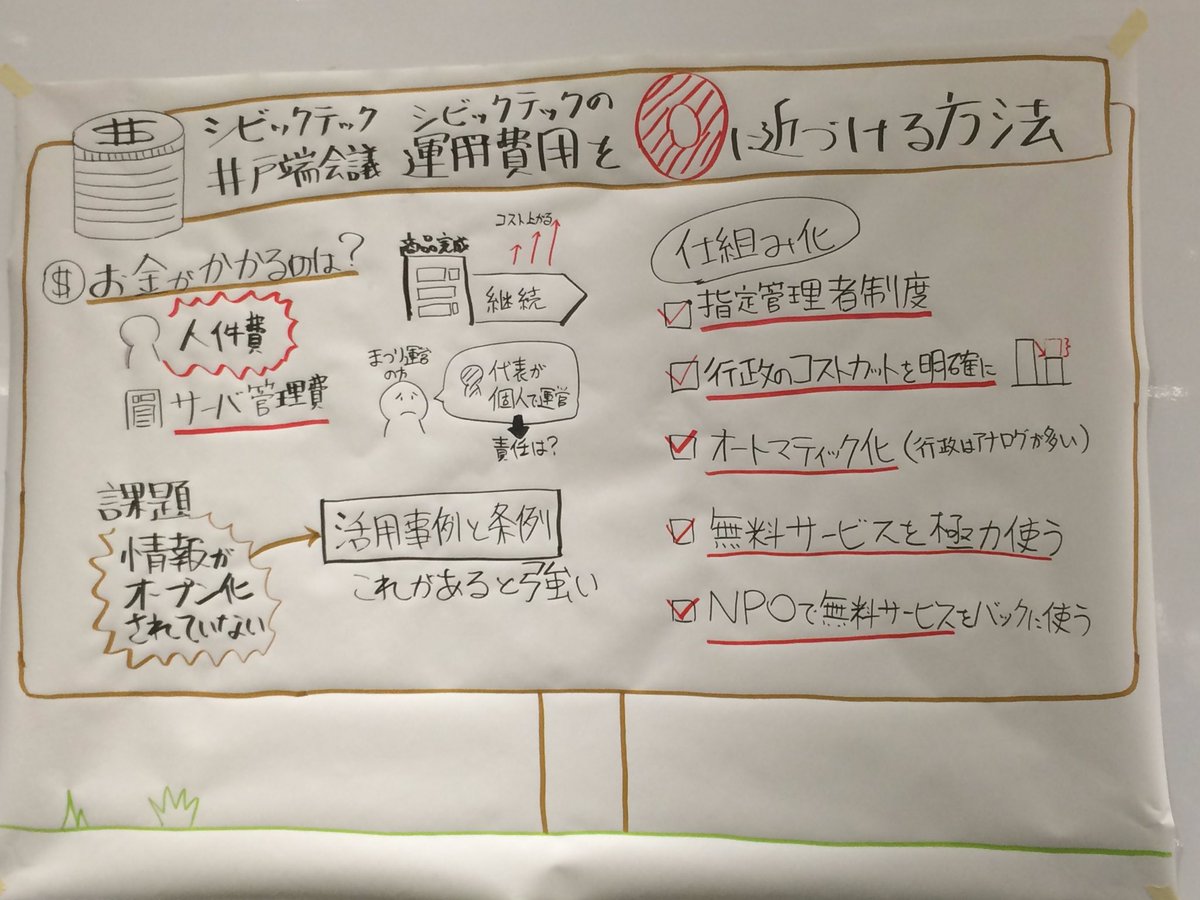 シビックテック
井戸端会議
シビックテックの
運用費用を0に近づける方法
$ お金がかかるのは?
人件費
サーバ管理費
商品完成
継続
コスト上がる
まつり運営
の方
代表が
個人で運営
責任は?
課題
情報が
オープン化
されていない
活用事例と条例
これがあると強い
仕組み化
指定管理者制度
行政のコストカットを明確に
オートマティック化(行政はアナログが多い)
無料サービスを極力使う
NPOで無料サービスをバックに使う